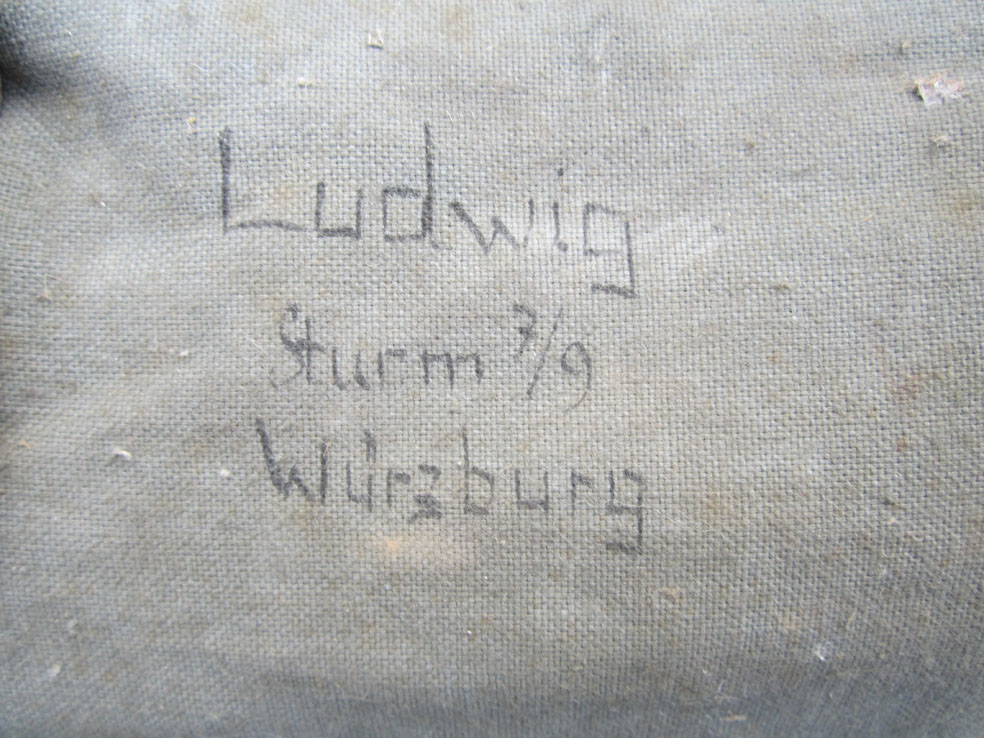 Ludwig
Sturm 7/9
Würzburg